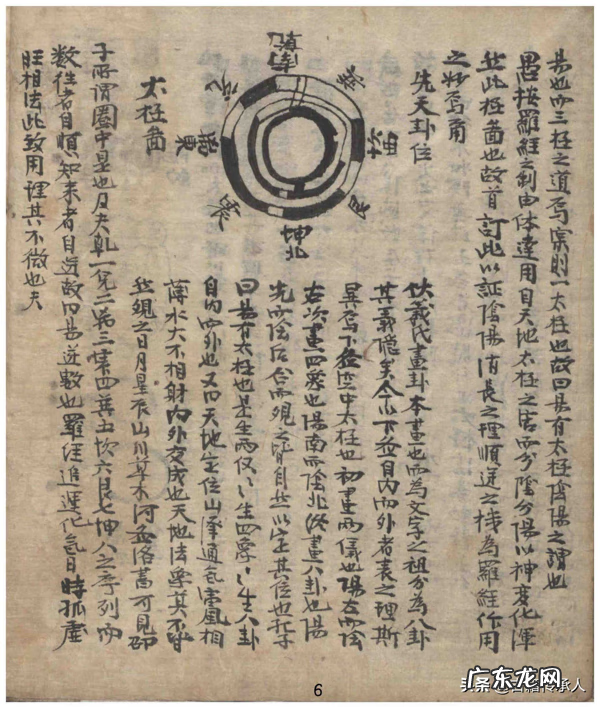 易也而三極之道焉宗則一太極也故曰易有太極陰陽之謂也
愚按羅經之制由体達用自天地太極之 而分陰分陽以神变化渾
然此極啚也故首訂此以証陰陽消長之理順逆之機為羅經作用
之妙焉
先天卦位
乾南
兑
離東
震
坤北
艮
坎西
巽
伏羲氏畫卦本畫也而為文字之祖分為八卦
其義隐矣今 下 自内而外者表之理斯
焉下 空中太極也初畫两儀也陽左而陰
右次畫四象也陽南而陰北終畫八卦也陽
先而陰后合而观之皆自然以定其位也孔子
曰易有太極也是生两仪〻生四象〻生八卦
自内而外也又曰天地定位山澤通气雷風相
薄水火不相射内外交成也天地法象莫不
然观之日月星辰山川草木河 洛 可見
太極啚
子所謂圈中是也及夫乾一兑二离三震四巽五坎六艮七坤八之序列而
数往者自順知来者自逆故曰易逆数也羅 造 化气日時孤虚
旺相法此致用理其不微也夫
6
头条@古籍传承人
广东龙网